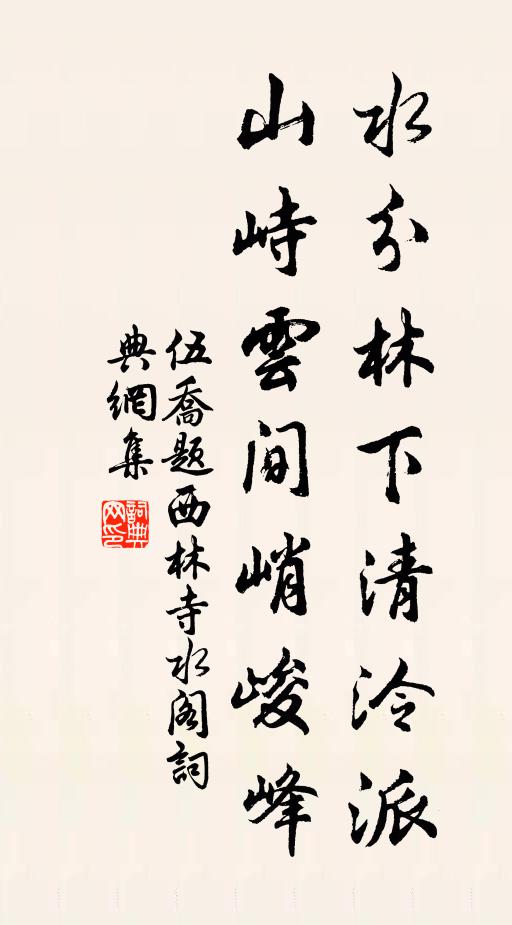 水分林下清泠派
山峙雲间峭峻峰
伍喬题西林寺水阁詞
典網集
詞典
网印